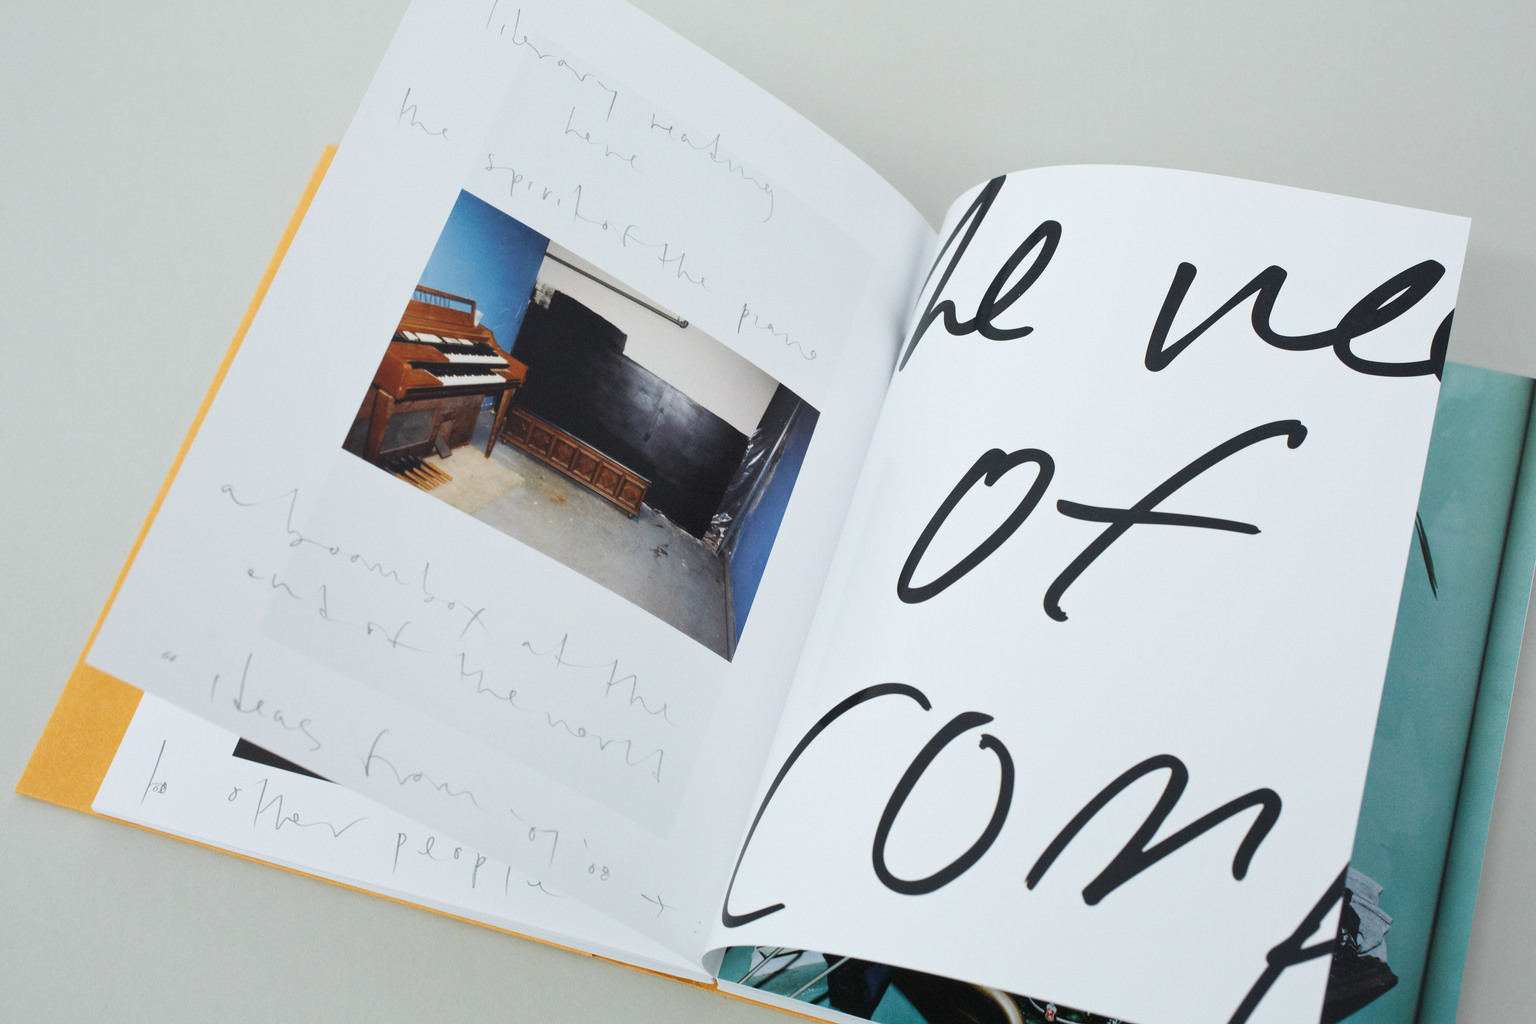 library reating
here
the spirit of the piano
a boombox at the
end of the world
" ideas from '07 '08 →
to other people
he nee
of
com